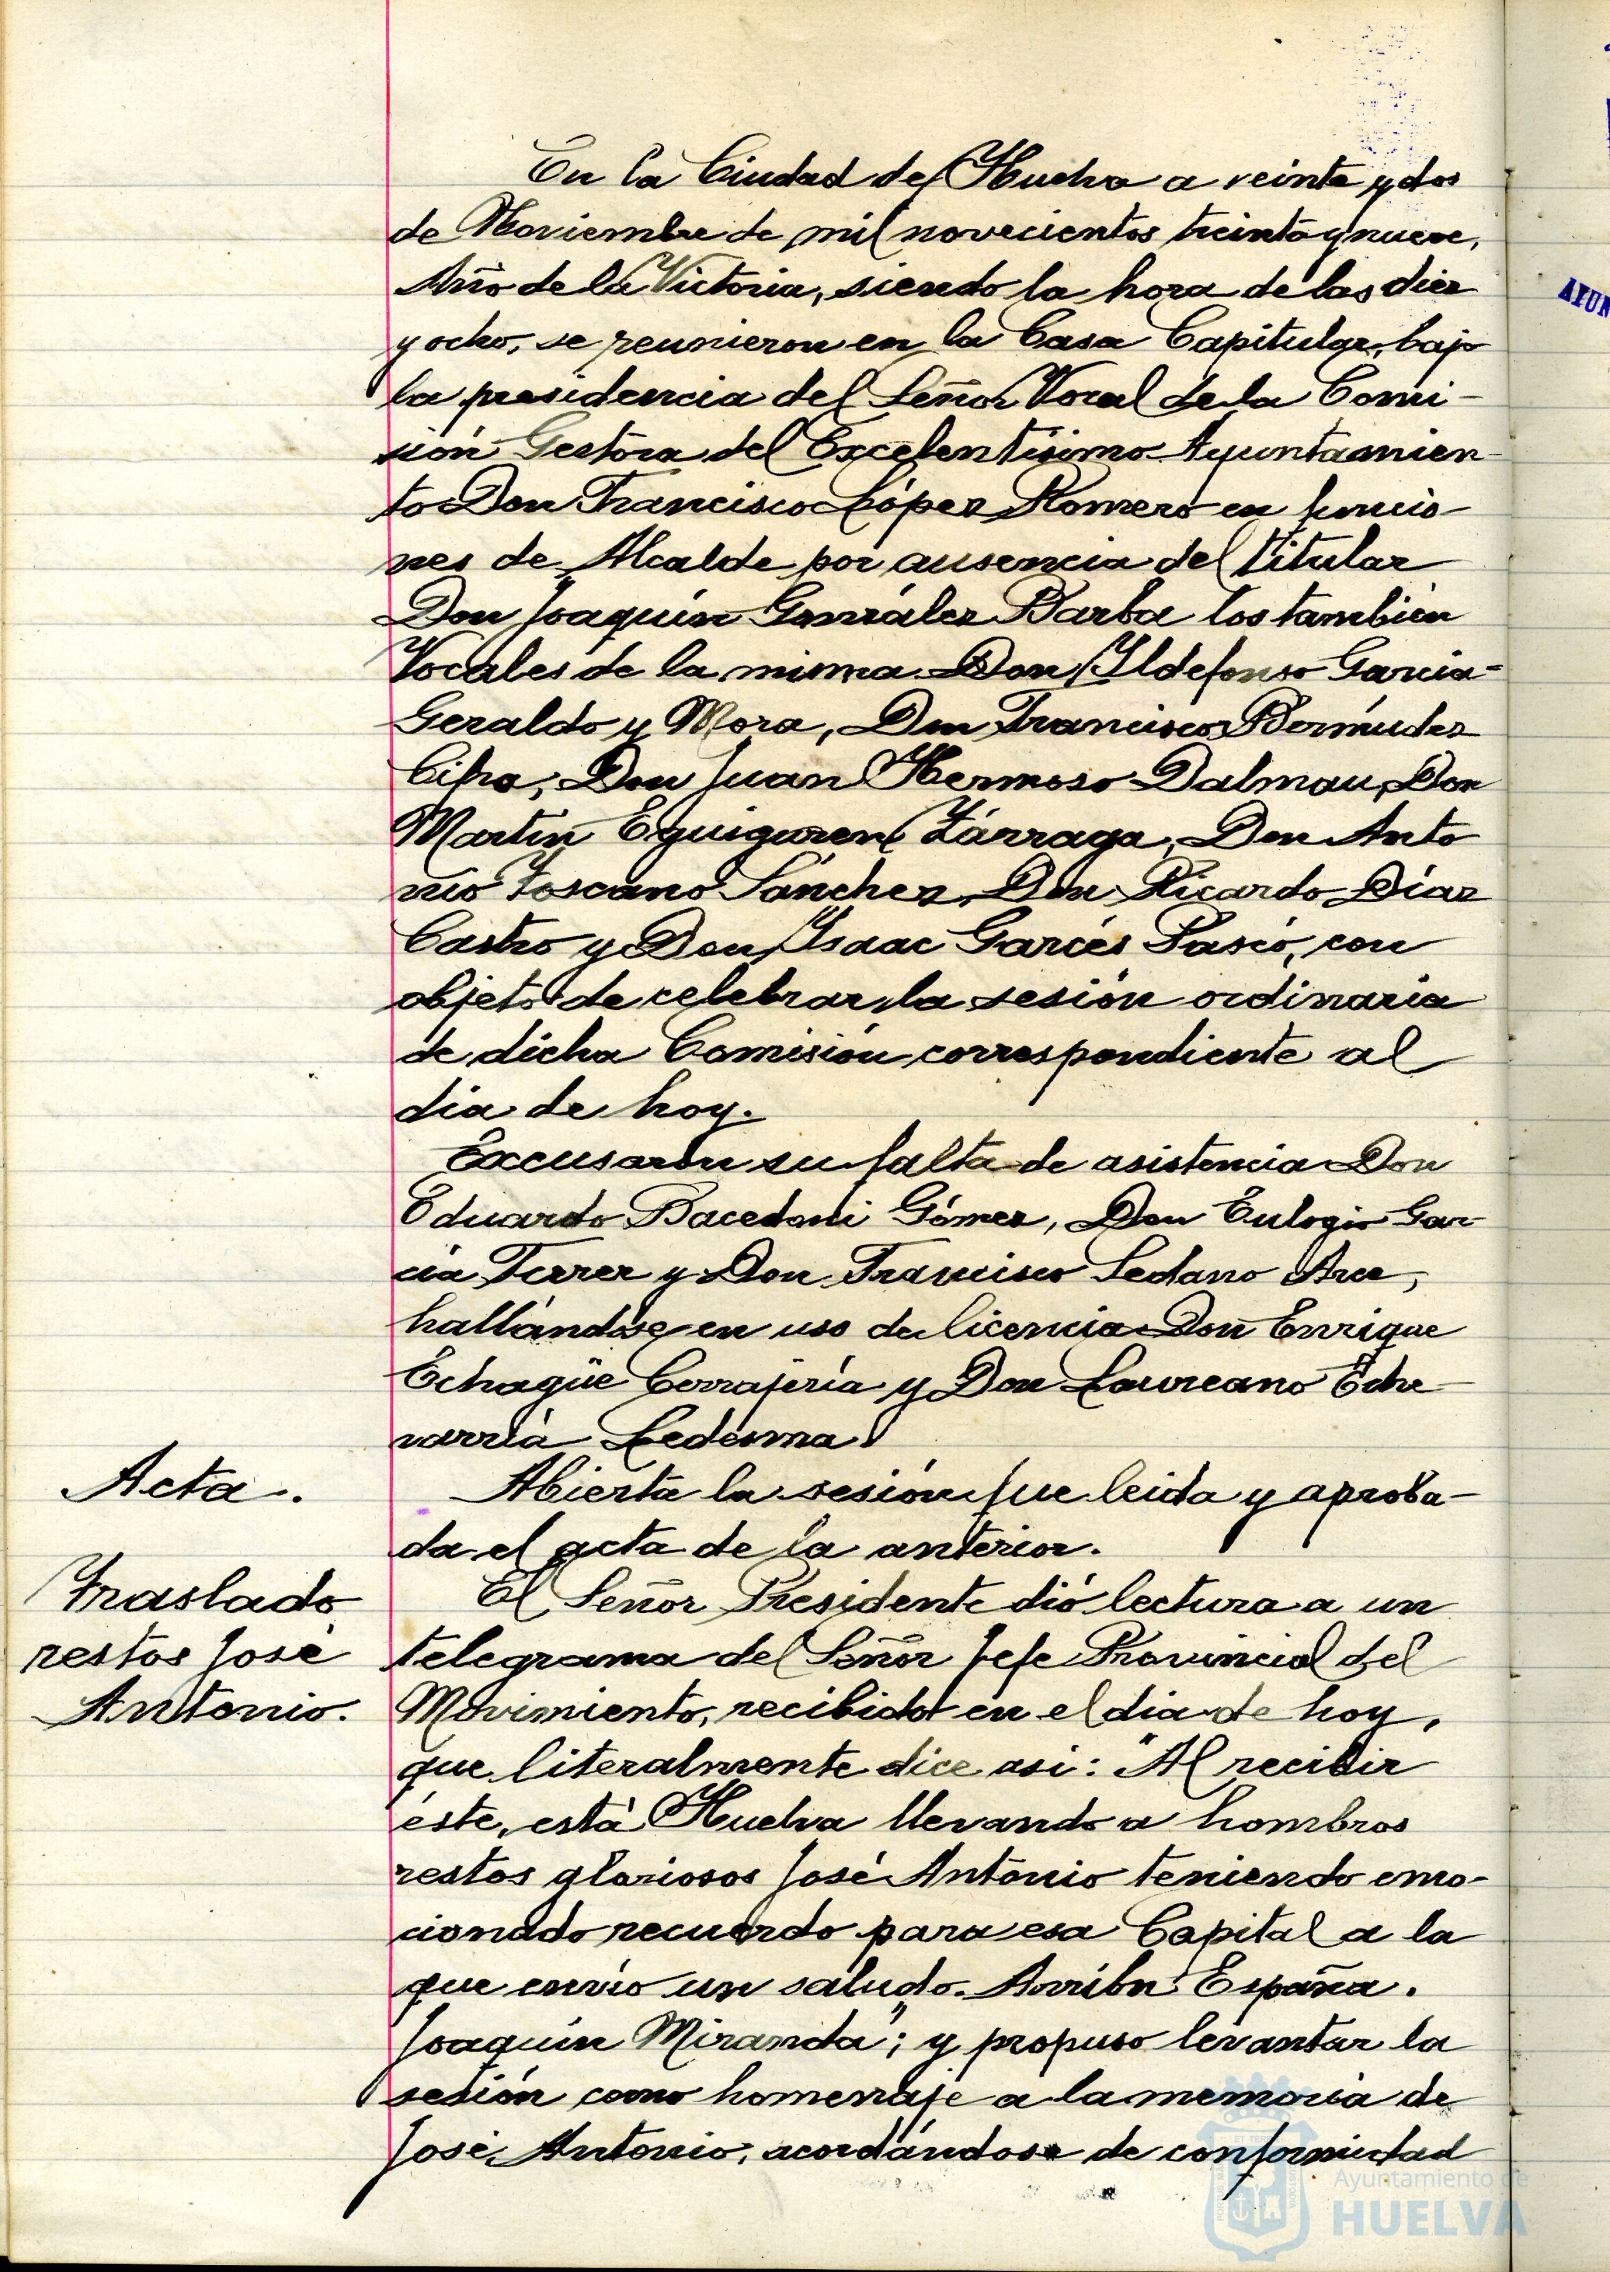 En la Ciudad de Huelva a veinte y dos
de Noviembre de mil novecientos treinta y nueve,
Año de la Victoria, siendo la hora de las diez
y ocho, se reunieron en la Casa Capitular, bajo
la presidencia del Señor Vocal de la Comi-
sión Gestora del Excelentísimo Ayuntamien-
to Don Francisco López Romero en funcio-
nes de Alcalde por ausencia del Titular
Don Joaquín González Barba los también
Vocales de la misma Don Ildefonso García-
Geraldo y Mora, Don Francisco Bermúdez
Cifra, Don Juan Hermoso Dalmau, Don
Martín Eguiguren Zárraga, Don Anto
nio Toscano Sánchez, Don Ricardo Díaz
Castro y Don Isaac Garcés Pasió, con
objeto de celebrar la sesión ordinaria
de dicha Comisión correspondiente al
dia de hoy.
Excusaron su falta de asistencia Don
Eduardo Bacedoni Gómez, Don Eulogio Gar-
cia Ferrer y Don Francisco Sedano Arce,
hallándose en uso de licencia Don Enrique
Echagüe Cerrajería y Don Laureano Eche-
varría Ledesma.
Acta.
Abierta la sesión fue leida y aproba-
da el acta de la anterior.
Traslado
restos José
Antonio.
El Señor Presidente dió lectura a un
telegrama del Señor Jefe Provincial del
Movimiento, recibido en el dia de hoy,
que literalmente dice asi: "Al recibir
éste, está Huelva llevando a hombros
restos gloriosos José Antonio teniendo emo-
cionado recuerdo para esa Capital a la
que envio un saludo. Arriba España.
Joaquín Miranda"; y propuso levantar la
sesión como homenaje a la memoria de
José Antonio, acordándose de conformidad
Ayuntamiento de
HUELVA
AYUN